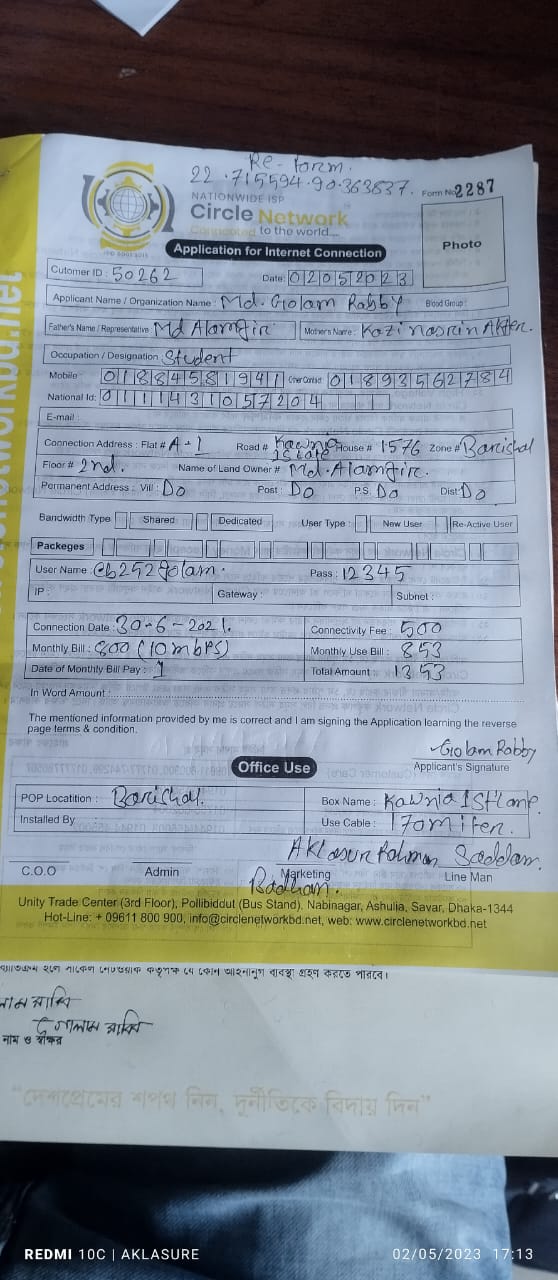 Re-form.
22.715594.90.363637.
Form No 2287
NATIONWIDE ISP
Circle Network
Connected to the world....
ISO 9001:2015
Application for Internet Connection
Photo
Cutomer ID : 50262 Date: 02052023
Applicant Name / Organization Name : Md. Golam Rabby Blood Group :
Father's Name / Representative : Md Alamgir Mother's Name : Kazi nasrin Akter.
Occupation / Designation : Student
Mobile : 01884581941 Other Contact : 01893562784
National Id: 0111431057204
E-mail :
Connection Address : Flat # A-1 Road # Kawnia 1st lane House # 1576 Zone # Barishal
Floor # 2nd. Name of Land Owner # Md. Alamgir.
Permanent Address : Vill : Do Post : Do P.S: Do Dist: Do
Bandwidth Type Shared Dedicated User Type : New User Re-Active User
Packeges
User Name : cb2529olam. Pass : 12345
IP : Gateway : Subnet :
Connection Date : 30-6-2021. Connectivity Fee : 500
Monthly Bill : 800 (10mbps) Monthly Use Bill : 853
Date of Monthly Bill Pay : 1 Total Amount : 1353
In Word Amount :
The mentioned information provided by me is correct and I am signing the Application learning the reverse
page terms & condition.
Golam Robby
Applicant's Signature
Office Use
POP Locatition : Barishal. Box Name : Kawnia 1st lane.
Installed By : Use Cable : 170 miter.
Aklasur Rahman Saddam.
C.O.O Admin Marketing Line Man
Badhan.
Unity Trade Center (3rd Floor), Pollibiddut (Bus Stand), Nabinagar, Ashulia, Savar, Dhaka-1344
Hot-Line: + 09611 800 900, info@circlenetworkbd.net, web: www.circlenetworkbd.net
হলে সার্কেল নেটওয়ার্ক কতৃপক্ষ যে কোন আইনানুগ ব্যবস্থা গ্রহণ করতে পারবে।
রাব্বি
গোলাম রাব্বি
নাম ও স্বাক্ষর
"দেশপ্রেমের শপথ নিন, দুর্নীতিকে বিদায় দিন"
REDMI 10C | AKLASURE 02/05/2023 17:13